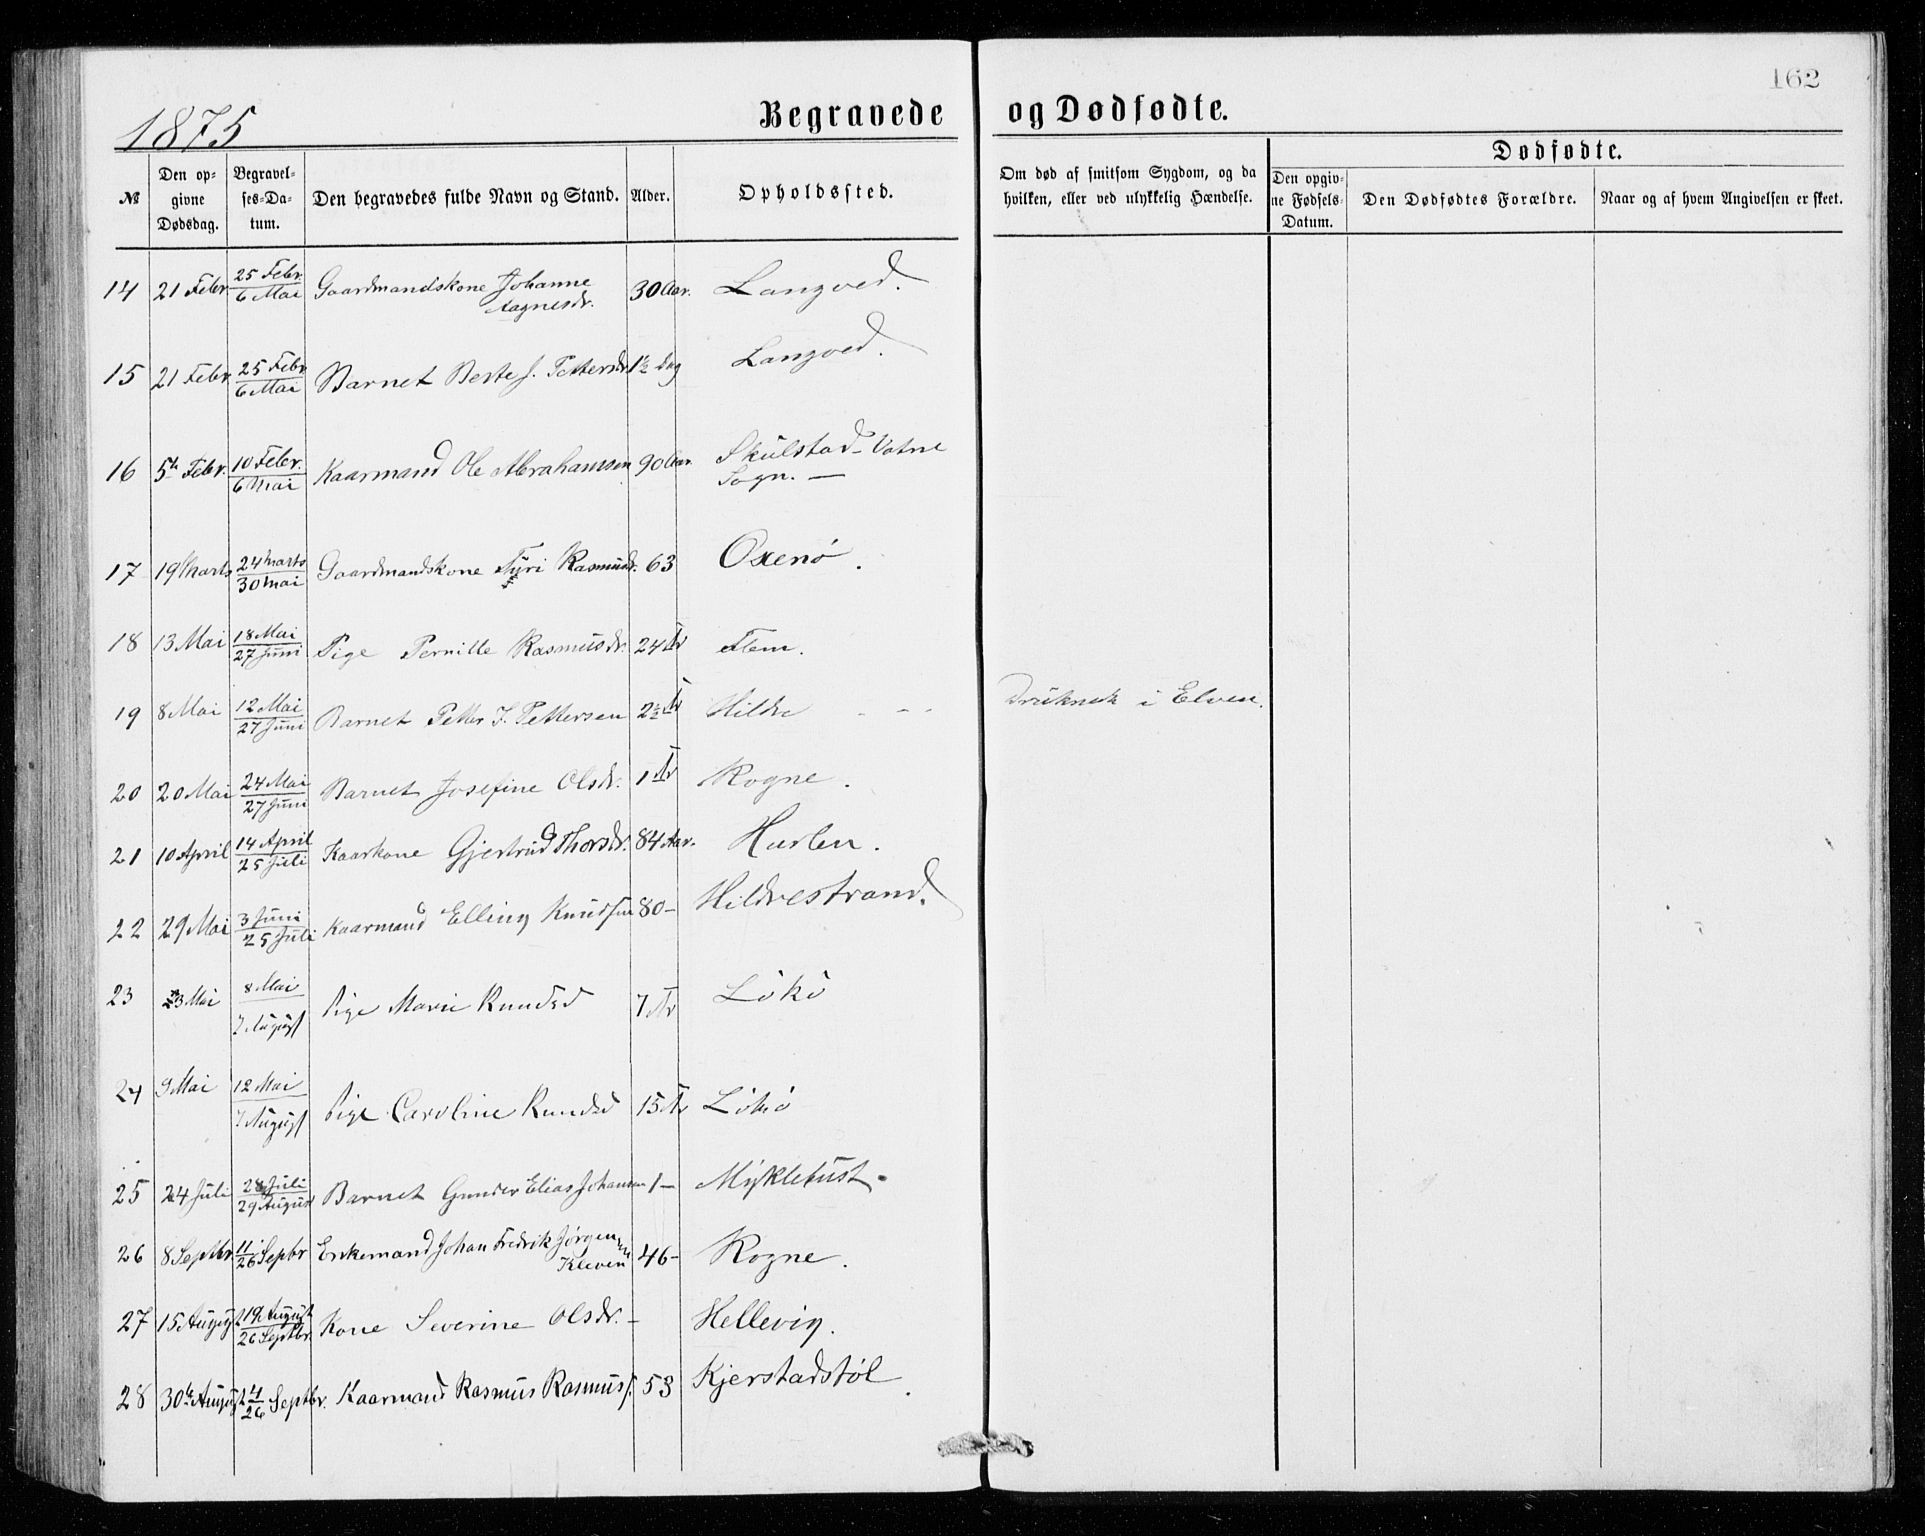 162
1875
Begravede og Dødfødte.
№ Den opgivne Dødsdag. Begravelses-Datum. Den begravedes fulde Navn og Stand. Alder. Opholdssted. Om død af smitsom Sygdom, og da hvilken, eller ved ulykkelig Hændelse. Dødfødte. Den opgivne Fødsels-Datum. Den Dødfødtes Forældre. Naar og af hvem Angivelsen er skeet.
14 21 Febr 25 Febr. 6 Mai Gaardmandskone Johanne Aagnesdr. 30 Aar. Langved.
15 21 Febr 25 Febr 6 Mai Barnet Berte J. Pettersdr 1½ Dag Langved.
16 5te Febr. 10 Febr. 6 Mai Kaarmand Ole Abrahamsen 90 Aar. Skülstad Vatne Sogn. —
17 19 Marts 24 Marts 30 Mai Gaardmandskone Tyri Rasmusdr. 63 Oxenø.
18 13 Mai 18 Mai 27 Juni Pige Pernille Rasmusdr. 24 År Flem.
19 8 Mai 12 Mai 27 Juni Barnet Petter J. Pettersen 2½ År Hildre - - - Druknede i Elven.
20 20 Mai 24 Mai 27 Juni Barnet Josefine Olsdr. 1 År Rogne.
21 10 April 14 April 25 Juli Kaarkone Gjertrud Thorsdr. 84 Aar. Hurlen.
22 29 Mai 3 Juni 25 Juli Kaarmand Elling Knudsen 80 – Hildrestrand.
23 3 Mai 8 Mai 7 August Pige Marie Knudsd 7 År Lökö
24 9 Mai 12 Mai 7 August Pige Caroline Knudsd 15 År Lökö
25 24 Juli 28 Juli 29 August Barnet Gunder Elias Johansen 1 – Myklebust
26 8 Septbr 11/26 Sepbr Enkemand Johan Fredrik Jørgensen Kleven 46 – Rogne.
27 15 August 19 August 26 Septbr. Kone Severine Olsdr. – Hellevig.
28 30te August 4/26 Septbr. Kaarmand Rasmus Rasmuss. 53 Kjerstadstøl.